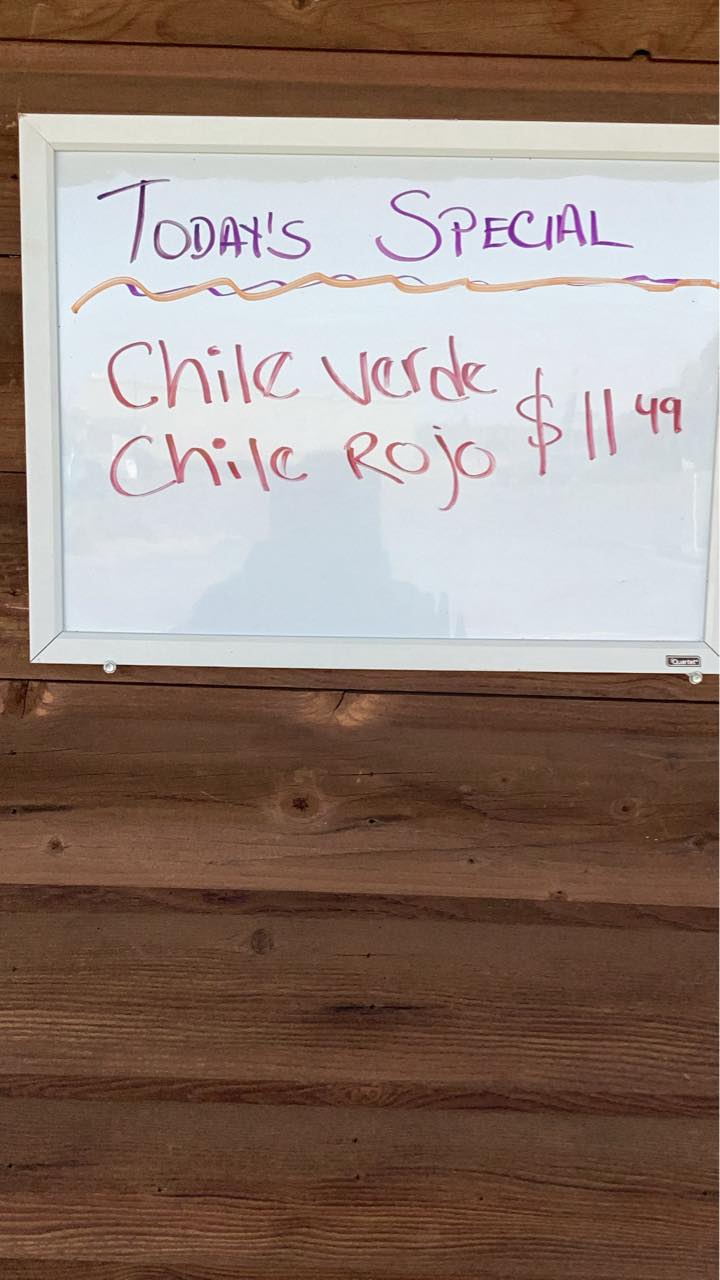 TODAY'S SPECIAL
Chile verde
$11 49
Chile Rojo
Quartet